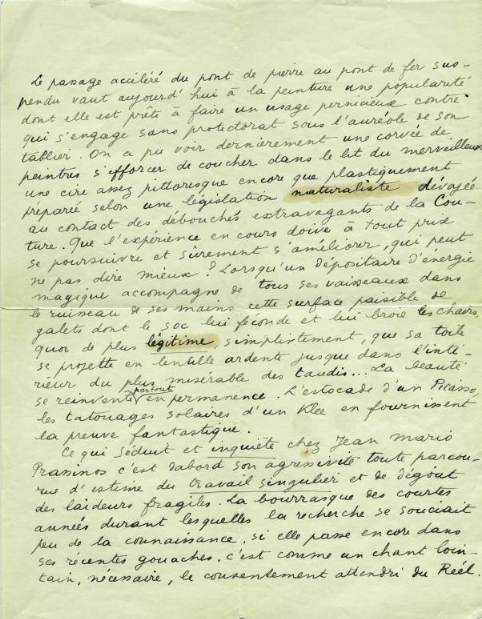 Le passage accéléré du pont de pierre au pont de fer sus-
pendu vaut aujourd'hui à la peinture une popularité
dont elle est prête à faire un usage pernicieux contre
qui s'engage sans protectorat sous l'auréole de son
tablier. On a pu voir dernièrement une corvée de
peintres s'efforcer de coucher dans le lit du merveilleux
une cire assez pittoresque encore que plastiquement
préparée selon une législation naturaliste dévoyée
au contact des débouchés extravagants de la Cou-
ture. Que l'expérience en cours doive à tout prix
se poursuivre et sûrement s'améliorer, qui peut
ne pas dire mieux ? Lorsqu'un dépositaire d'énergie
magique accompagne de tous ses vaisseaux dans
le ruisseau de ses mains cette surface paisible de
galets dont le soc lui féconde et lui broie les chairs,
quoi de plus légitime, simplistement, que sa toile
se projette en lentille ardente jusque dans l'inté-
rieur du plus misérable des taudis... La beauté
se réinvente partout en permanence. L'estocade d'un Picasso,
les tatouages solaires d'un Klee en fournissent
la preuve fantastique.
Ce qui séduit et inquiète chez Jean Mario
Prassinos c'est d'abord son agressivité toute parcou-
rue d'estime du travail singulier et de dégoût
des laideurs fragiles. La bourrasque des courtes
années durant lesquelles la recherche se souciait
peu de la connaissance, si elle passe encore dans
ses récentes gouaches, c'est comme un chant loin-
tain, nécessaire, le consentement attendri du Réel.